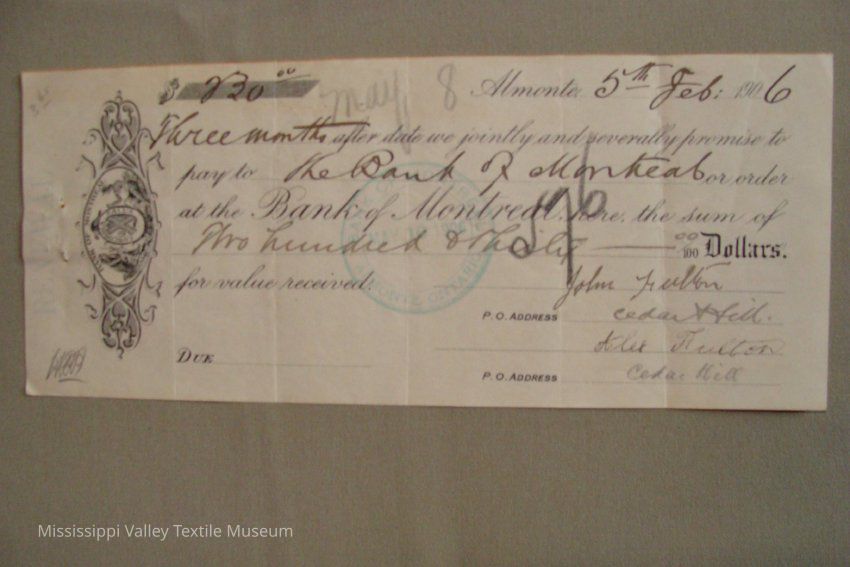 $ 230 00
May 8
Almonte 5th Feb: 1906
Three months after date we jointly and severally promise to
pay to The Bank of Montreal or order
at the Bank of Montreal here, the sum of
Two hundred & thirty 00/100 Dollars.
for value received.
John Fulton
P.O. ADDRESS Cedar Hill.
Alex Fulton
DUE
P.O. ADDRESS Cedar Hill
BANK OF MONTREAL
ALMONTE ONTARIO
Mississippi Valley Textile Museum